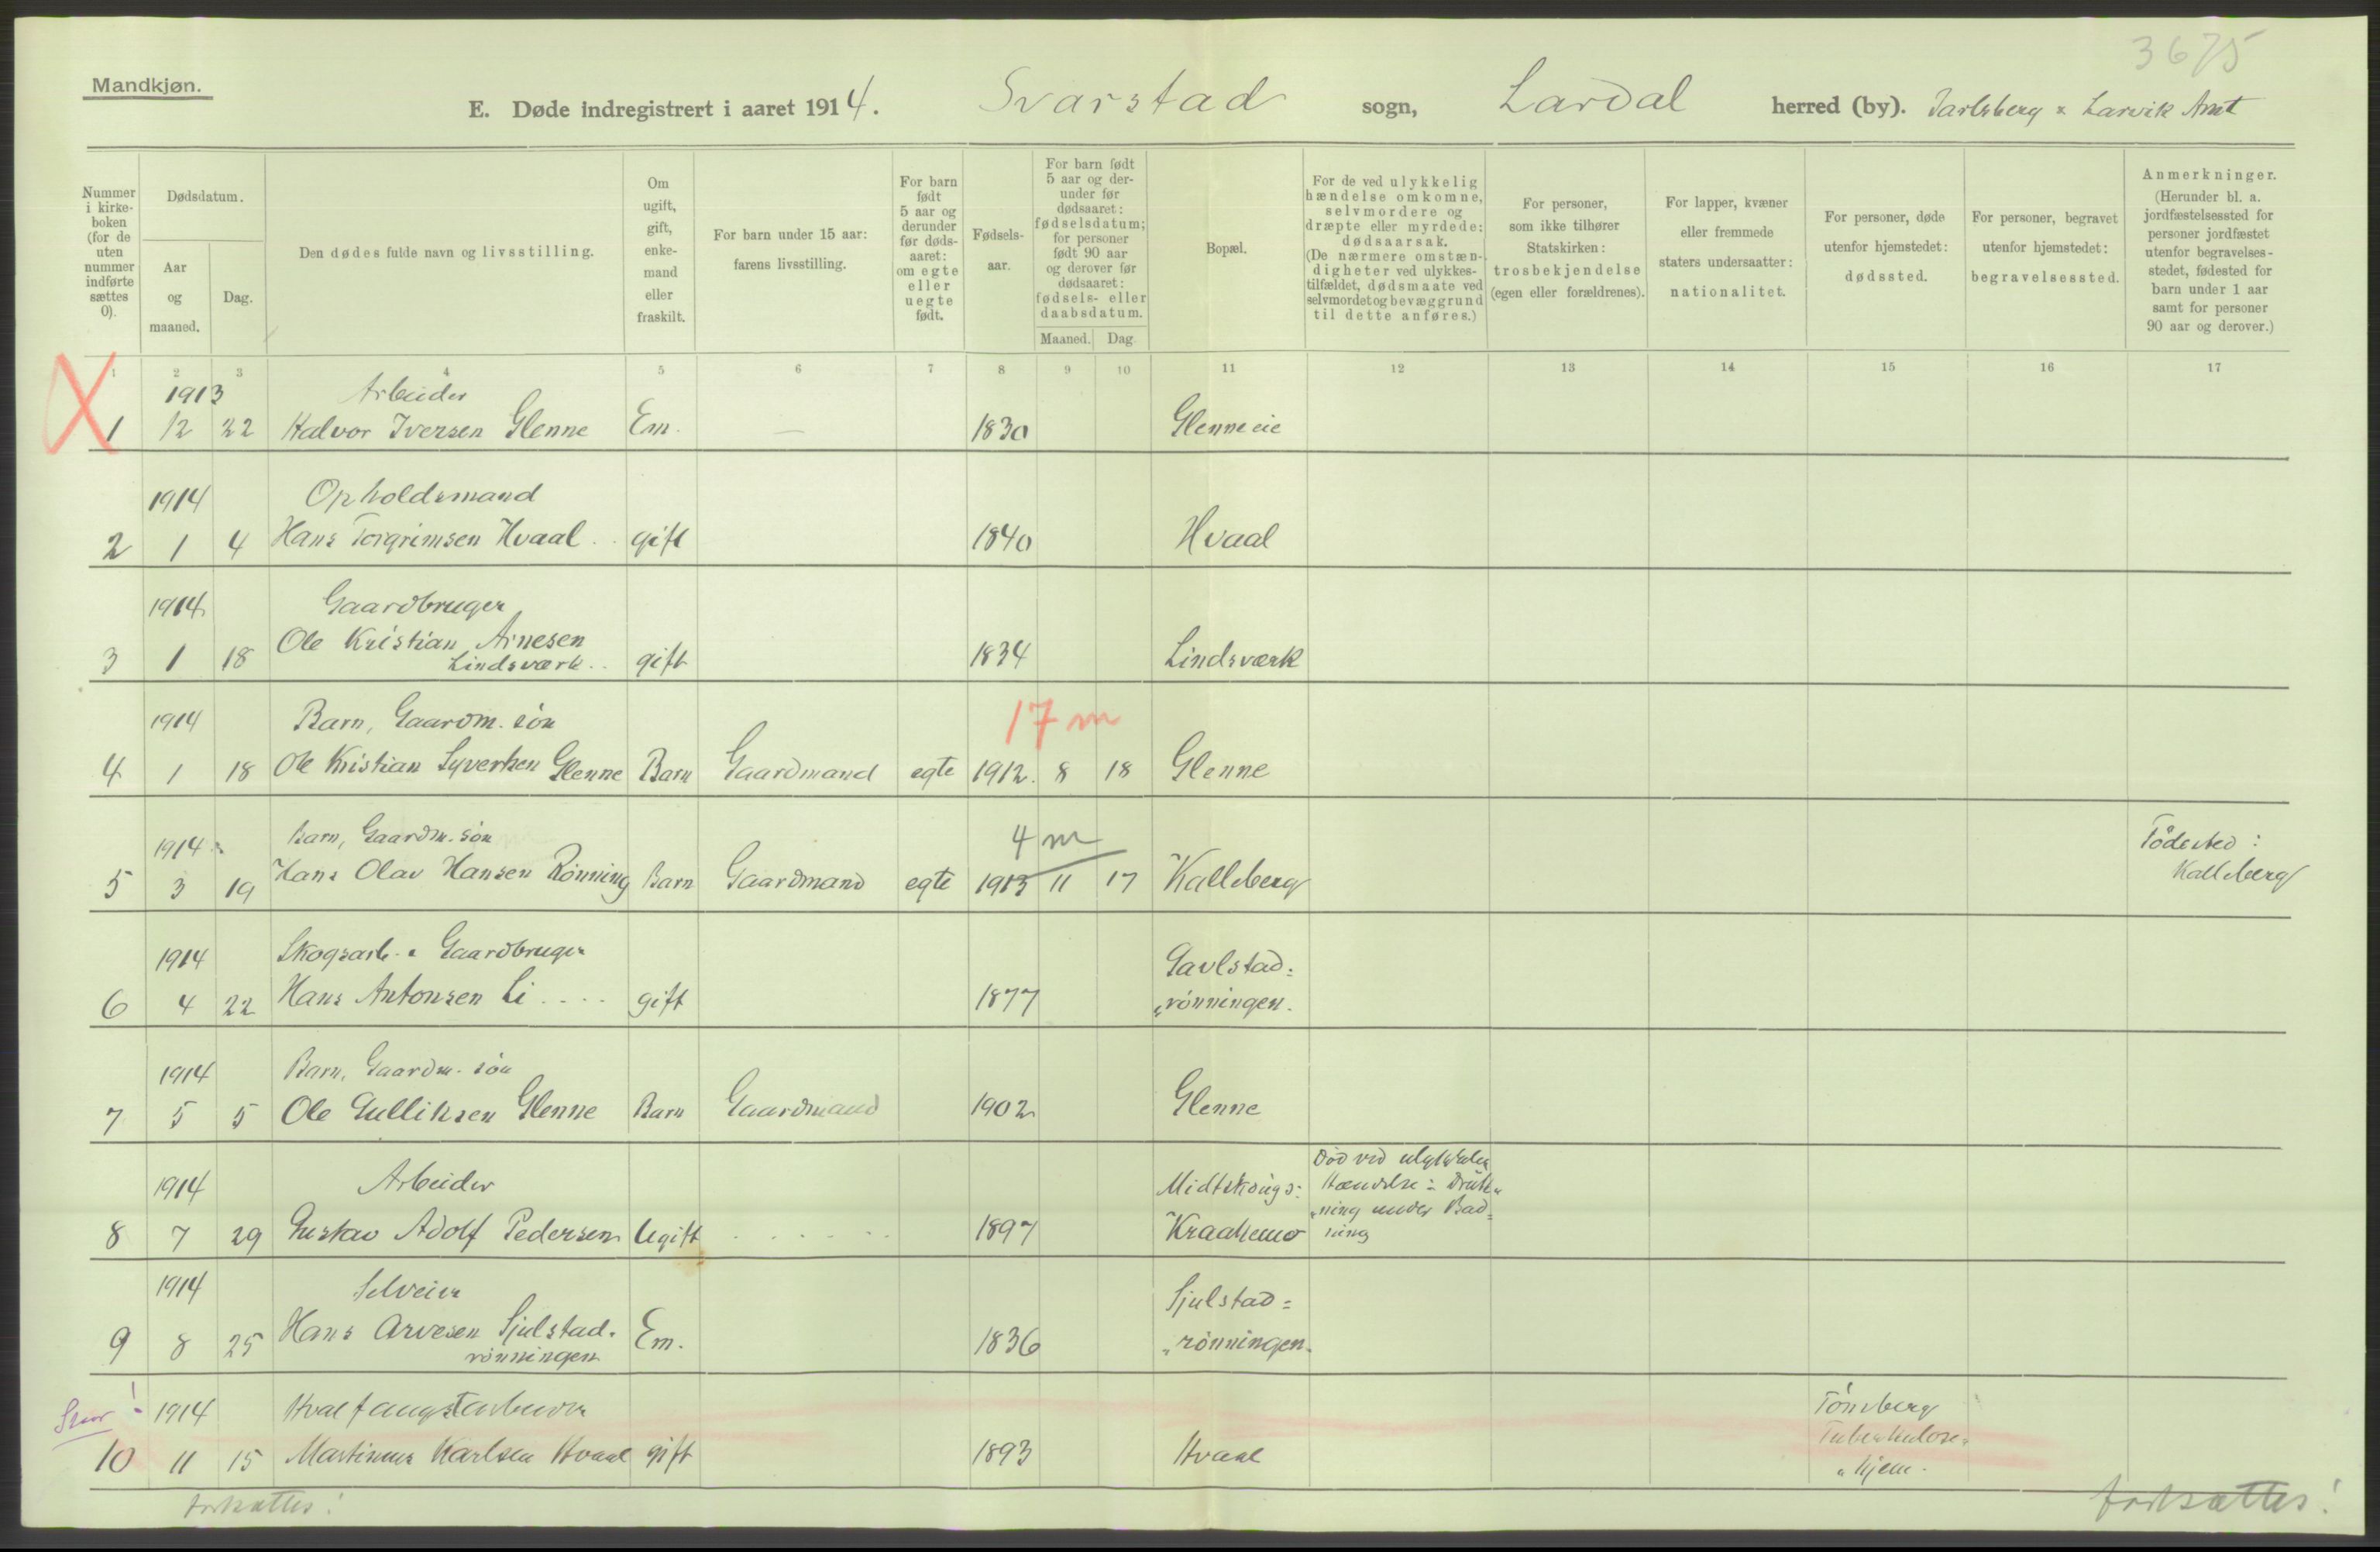 3675
Mandkjøn.
E. Døde indregistrert i aaret 1914. Svarstad sogn, Lardal herred (by). Jarlsberg & Larvik Amt
Nummer i kirke-boken (for de uten nummer indførte sættes 0).
Dødsdatum.
Aar og maaned.
Dag.
Den dødes fulde navn og livsstilling.
Om ugift, gift, enke-mand eller fraskilt.
For barn under 15 aar: farens livsstilling.
For barn født 5 aar og derunder før døds-aaret: om egte eller uegte født.
Fødsels-aar.
For barn født 5 aar og der-under før dødsaaret: fødselsdatum; for personer født 90 aar og derover før dødsaaret: fødsels- eller daabsdatum.
Maaned. Dag
Bopæl.
For de ved ulykkelig hændelse omkomne, selvmordere og dræpte eller myrdede: dødsaarsak. (De nærmere omstæn-digheter ved ulykkes-tilfældet, dødsmaate ved selvmordet og bevæggrund til dette anføres.)
For personer, som ikke tilhører Statskirken: trosbekjendelse (egen eller forældrenes).
For lapper, kvæner eller fremmede staters undersaatter: nationalitet.
For personer, døde utenfor hjemstedet: dødssted.
For personer, begravet utenfor hjemstedet: begravelsessted.
Anmerkninger. (Herunder bl. a. jordfæstelsessted for personer jordfæstet utenfor begravelses-stedet, fødested for barn under 1 aar samt for personer 90 aar og derover.)
1 2 3 4 5 6 7 8 9 10 11 12 13 14 15 16 17
X
1913 Arbeider
1 12 22 Halvor Iversen Glenne Em. — 1830 Glenne eie
1914 Opholdsmand
2 1 4 Hans Torgrimsen Hvaal gift 1840 Hvaal
1914 Gaardbruger
Ole Kristian Arnesen
3 1 18 Lindsværk gift 1834 Lindsværk
1914 Barn, Gaardm. søn 17 m
4 1 18 Ole Kristian Syvertsen Glenne Barn Gaardmand egte 1912. 8 18 Glenne
1914 Barn, Gaardm. søn 4 m Födested:
5 3 19 Hans Olav Hansen Rönning Barn Gaardmand egte 1913 11 17 Kalleberg Kalleberg
1914 Skogsarb. & Gaardbruger Gavlstad=
6 4 22 Hans Antonsen Li .... gift 1877 "rönningen.
1914 Barn, Gaardm. søn
7 5 5 Ole Gulliksen Glenne Barn Gaardmand 1902 Glenne
Död ved ulykkelig
1914 Arbeider Midtskougs= Hændelse: Druk=
"ning under Bad=
8 7 29 Gustav Adolf Pedersen Ugift 1897 Kraakemo ning
1914 Selveier Sjulstad=
9 8 25 Hans Arvesen Sjulstad= Em. 1836 "rönningen.
rönningen
1914 Hvalfangstarbeider Tönsberg
Tuberkulose=
10 11 15 Martinus Karlsen Hvaal gift 1893 Hvaal "hjem.
fortsættes! fortsættes!